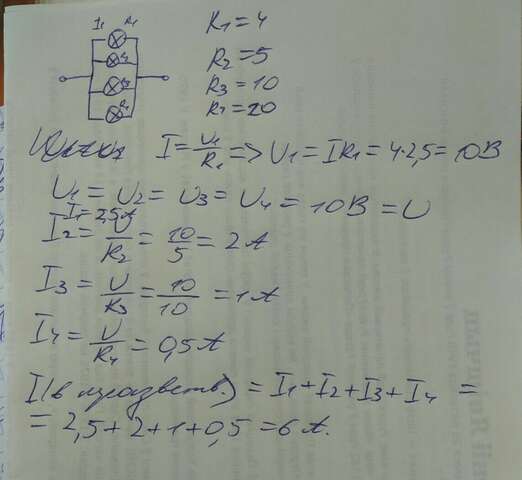 I₁ R₁
R₂
R₃
R₄
R₁ = 4
R₂ = 5
R₃ = 10
R₂ = 20
I = U₁/R₁ => U₁ = IR₁ = 4·2,5 = 10В
U₁ = U₂ = U₃ = U₄ = 10В = U
I₁ = 2,5А
I₂ = U/R₂ = 10/5 = 2 А
I₃ = U/R₃ = 10/10 = 1 А
I₄ = U/R₄ = 0,5 А
I (в неразветв.) = I₁ + I₂ + I₃ + I₄ =
= 2,5 + 2 + 1 + 0,5 = 6 А.